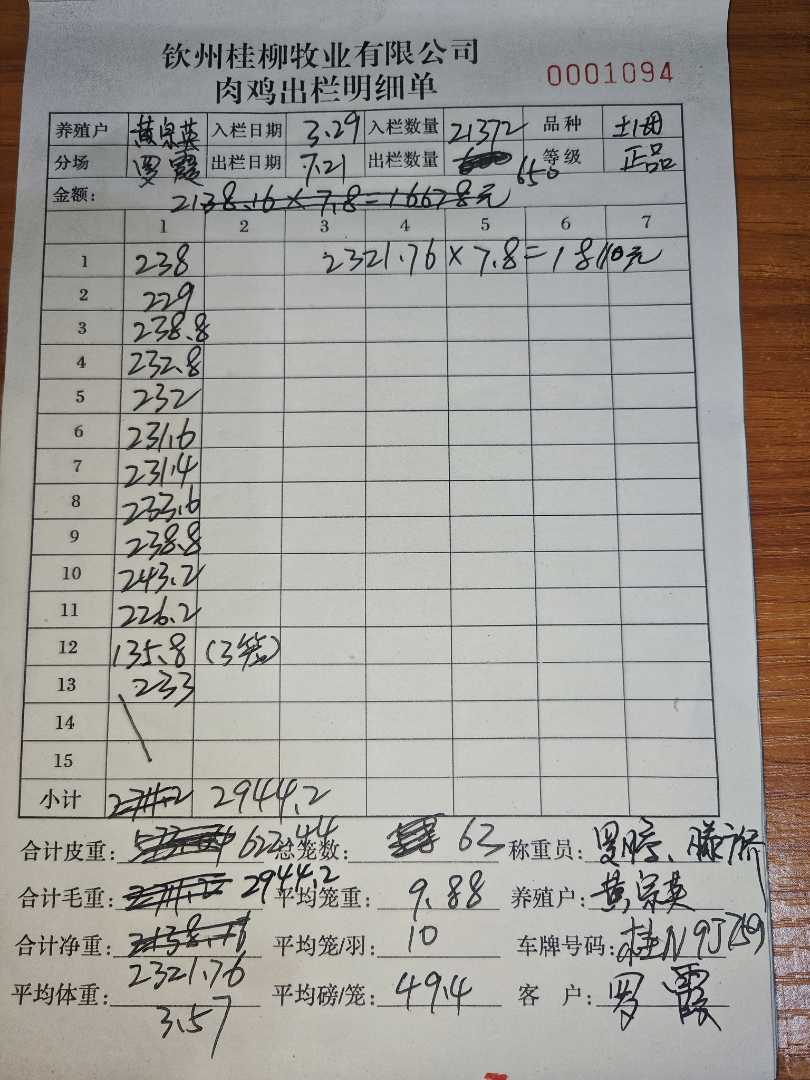 钦州桂柳牧业有限公司
肉鸡出栏明细单
0001094
养殖户 黄宗英 入栏日期 3.29 入栏数量 21372 品种 土1母
分场 罗霞 出栏日期 7.21 出栏数量 650 等级 正品
金额: 2138.16×7.8=16678元
1 2 3 4 5 6 7
1 238 2321.76×7.8=18110元
2 229
3 238.8
4 232.8
5 232
6 231.6
7 231.4
8 233.6
9 238.8
10 243.2
11 226.2
12 135.8 (3笼)
13 233
14
15
小计 2711.2 2944.2
合计皮重: 622.44 总笼数: 63 称重员: 罗
合计毛重: 2711.2 2944.2 平均笼重: 9.88 养殖户: 黄宗英
合计净重: 2138.16 平均笼/羽: 10 车牌号码: 桂N9J759
2321.76
平均体重: 3.57 平均磅/笼: 49.4 客 户: 罗霞